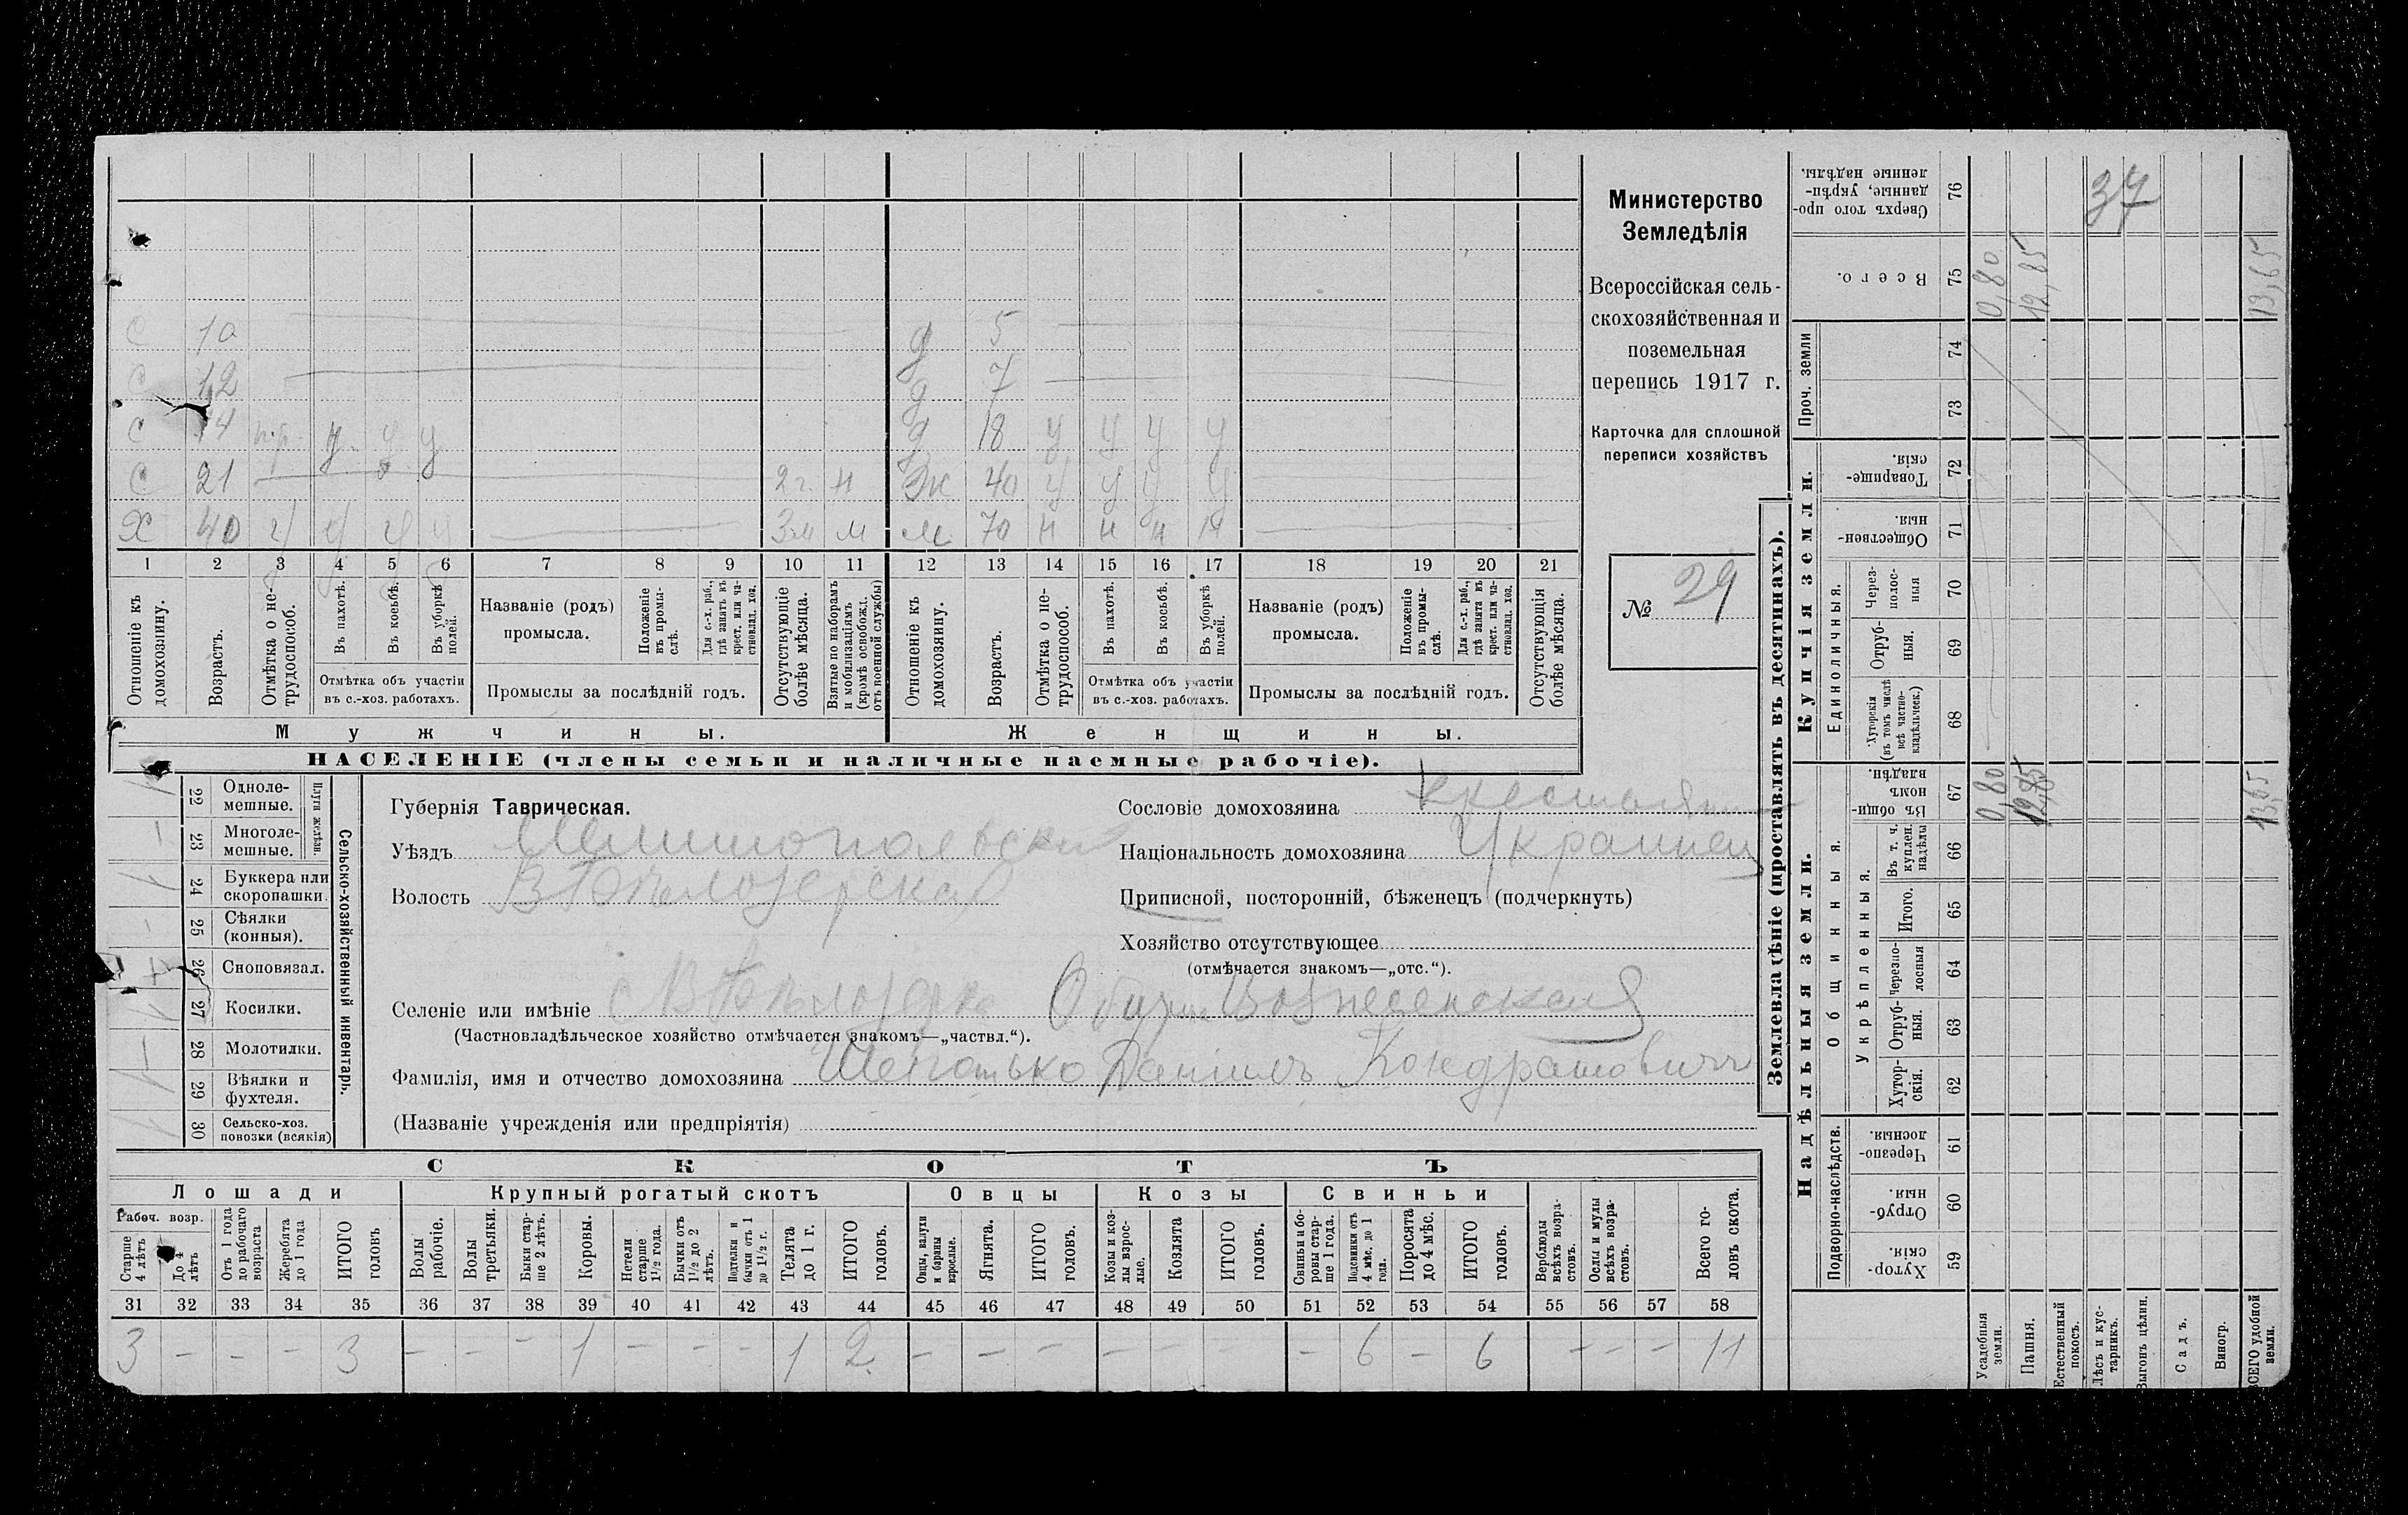 Министерство
Земледѣлія
Всероссійская сель-
скохозяйственная и
поземельная
перепись 1917 г.
Карточка для сплошной
переписи хозяйствъ
№ 29
С 10 д 5
С 12 д 7
С 14 п.р. у у у д 18 у у у у
С 21 2 г. н Ж 40 у у у у
Х 40 у у у у 3 м м м 70 н н н н
1 2 3 4 5 6 7 8 9 10 11 12 13 14 15 16 17 18 19 20 21
Отношеніе къ домохозяину.
Возрастъ.
Отмѣтка о не-трудоспособ.
Въ пахотѣ.
Въ косьбѣ.
Въ уборкѣ полей.
Отмѣтка объ участіи
въ с.-хоз. работахъ.
Названіе (родъ)
промысла.
Положеніе въ промы-слѣ.
Для с.-х. раб., гдѣ занятъ въ крест. или ча-стновлад. хоз.
Промыслы за послѣдній годъ.
Отсутствующіе болѣе мѣсяца.
Взятые по наборамъ и мобилизаціямъ (кромѣ освобожд. отъ военной службы)
Отношеніе къ домохозяину.
Возрастъ.
Отмѣтка о не-трудоспособ.
Въ пахотѣ.
Въ косьбѣ.
Въ уборкѣ полей.
Отмѣтка объ участіи
въ с.-хоз. работахъ.
Названіе (родъ)
промысла.
Положеніе въ промы-слѣ.
Для с.-х. раб., гдѣ занята въ крест. или ча-стновлад. хоз.
Промыслы за послѣдній годъ.
Отсутствующія болѣе мѣсяца.
Мужчины. Женщины.
НАСЕЛЕНІЕ (члены семьи и наличные наемные рабочіе).
Сельско-хозяйственный инвентарь.
Плуги желѣзн.
22 Одноле-мешные.
23 Многоле-мешные.
24 Буккера или скоропашки.
25 Сѣялки (конныя).
26 Сноповязал.
27 Косилки.
28 Молотилки.
29 Вѣялки и фухтеля.
30 Сельско-хоз. повозки (всякія)
Губернія Таврическая.
Уѣздъ Мелитопольскій
Волость В Бѣлозерская
Селеніе или имѣніе с В Бѣлозерка Общ. Вознесенская
(Частновладѣльческое хозяйство отмѣчается знакомъ—„частвл.“).
Фамилія, имя и отчество домохозяина Шепотько Даніилъ Кондратовичъ
(Названіе учрежденія или предпріятія)
Сословіе домохозяина крестьянинъ
Національность домохозяина Украинец
Приписной, посторонній, бѣженецъ (подчеркнуть)
Хозяйство отсутствующее
(отмѣчается знакомъ—„отс.“).
СКОТЪ
Лошади Крупный рогатый скотъ Овцы Козы Свиньи
Рабоч. возр.
Старше 4 лѣтъ
До 4 лѣтъ
Отъ 1 года до рабочаго возраста
Жеребята до 1 года
ИТОГО головъ
Волы рабочіе.
Волы третьяки.
Быки стар-ше 2 лѣтъ.
Коровы.
Нетели старше 1½ года.
Бычки отъ 1½ до 2 лѣтъ.
Подтелки и бычки отъ 1 до 1½ г.
Телята до 1 г.
ИТОГО головъ.
Овцы, валухи и бараны взрослые.
Ягнята.
ИТОГО головъ.
Козы и коз-лы взрос-лые.
Козлята
ИТОГО головъ.
Свиньи и бо-ровы стар-ше 1 года.
Подсвинки отъ 4 мѣс. до 1 года.
Поросята до 4 мѣс.
ИТОГО головъ.
Верблюды всѣхъ возра-стовъ.
Ослы и мулы всѣхъ возра-стовъ.
Всего го-ловъ скота.
31 32 33 34 35 36 37 38 39 40 41 42 43 44 45 46 47 48 49 50 51 52 53 54 55 56 57 58
3 — — — 3 — — — 1 — — — 1 2 — — — — — — — 6 — 6 — — — 11
Землевладѣніе (проставлять въ десятинахъ).
Купчія земли.
Надѣльныя земли.
Сверхъ того про-данные, укрѣп-ленные надѣлы. 76
37
Всего. 75 0,80 12,85 13,65
Проч. земли 74 73
Товарище-скія. 72
Обществен-ныя. 71
Единоличныя.
Через-полос-ныя 70
Отруб-ныя. 69
Хуторскія (въ томъ числѣ всѣ частно-владѣльческ.) 68
Общинныя.
Въ общи-номъ владѣн. 67 0,80 12,85 13,65
Укрѣпленныя.
Въ т. ч. куплен. надѣлы 66
Итого. 65
Черезпо-лосныя 64
Отруб-ныя. 63
Хутор-скія. 62
Подворно-наслѣдств.
Черезпо-лосныя. 61
Отруб-ныя. 60
Хутор-скія. 59
Усадебныя земли.
Пашня.
Естественный покосъ.
Лѣсъ и кус-тарникъ.
Выгонъ цѣлин.
Садъ.
Виногр.
ВСЕГО удобной земли.